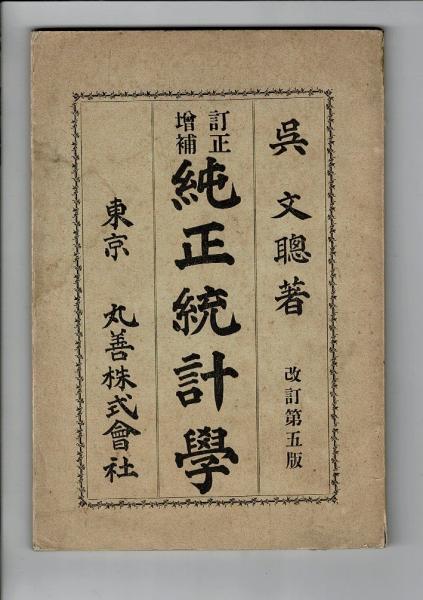 呉文聰著
改訂第五版
訂正
增補
純正統計學
東京 丸善株式會社